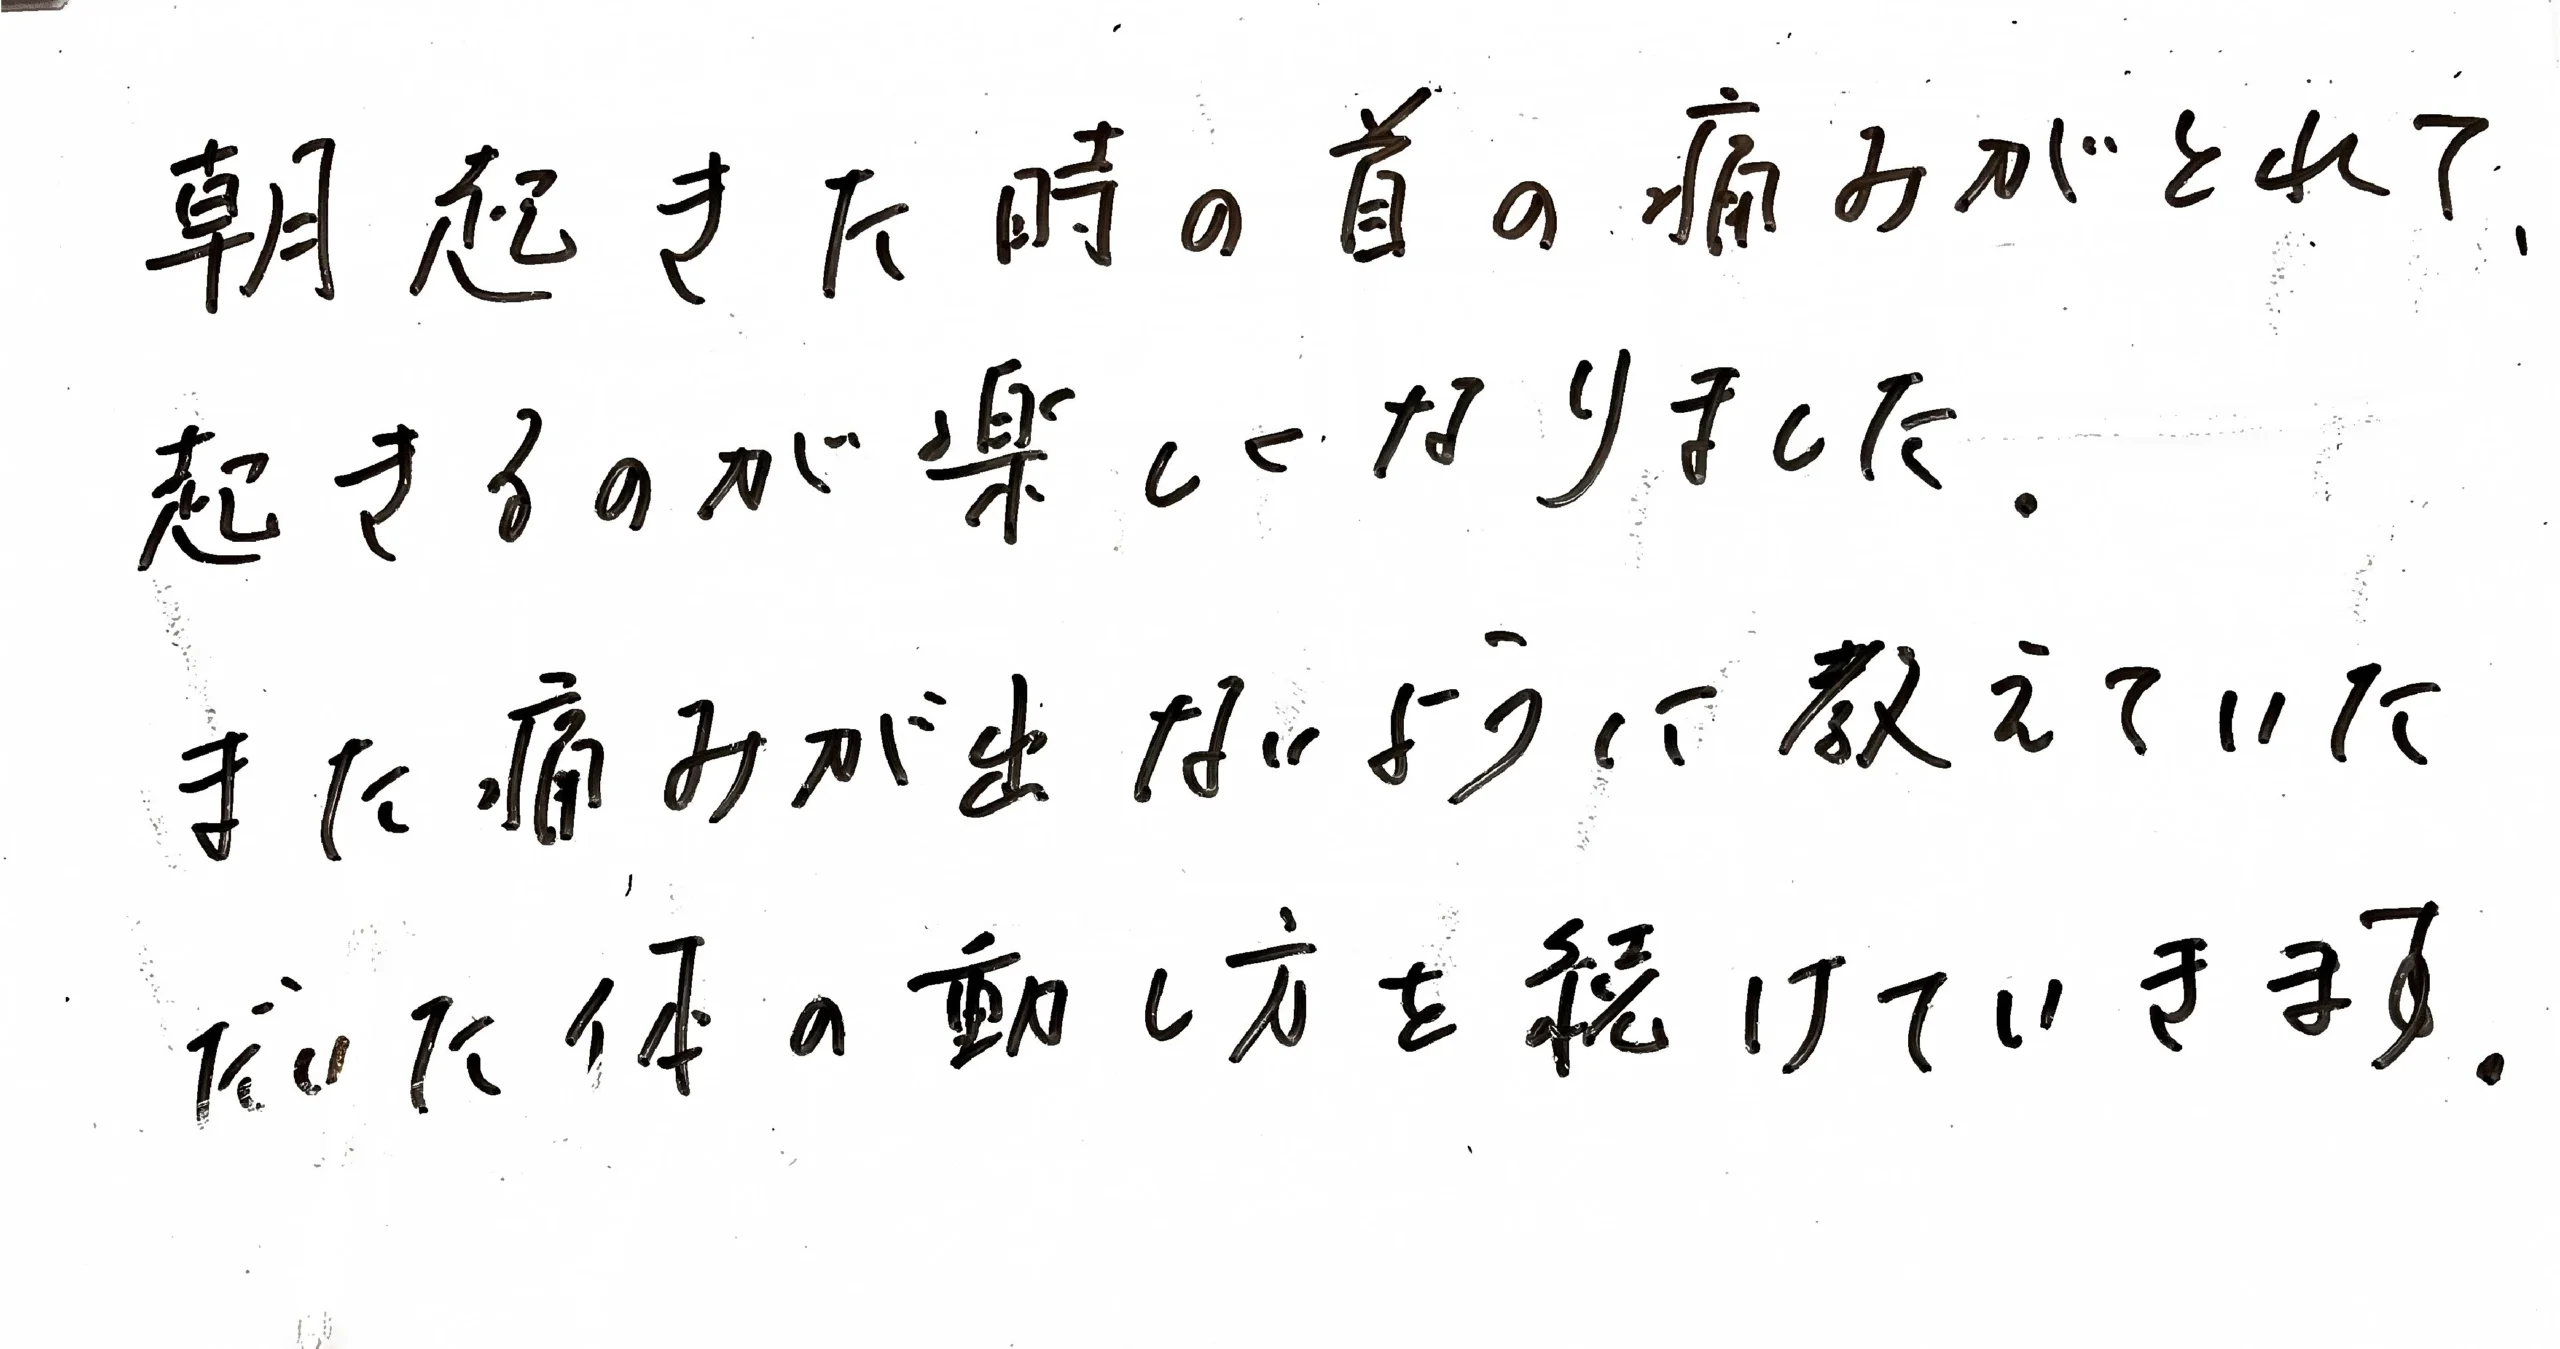 朝起きた時の首の痛みがとれて、
起きるのが楽しくなりました.
また痛みが出ないように教えていた
だいた体の動し方を続けていきます.